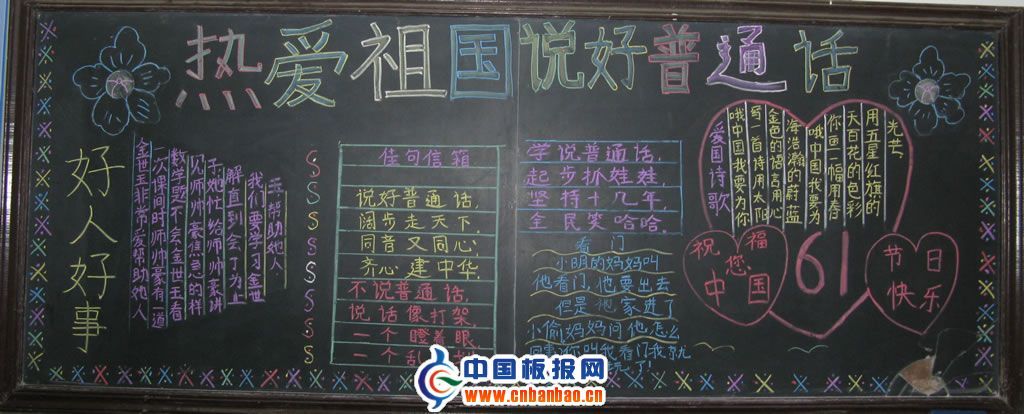 热爱祖国说好普通话
好人好事
金世玉非常爱帮助她人
一次课间时师帅豪有一道
数学题不会金世玉看
见师帅豪焦急的样
子她忙给师帅豪讲
解直到会了为止
我们要学习金世
玉帮助她人
佳句信箱
说好普通话,
阔步走天下,
同音又同心,
齐心建中华,
不说普通话,
说话像打架,
一个瞪着眼,
一个乱
学说普通话,
起步抓娃娃,
坚持十几年,
全民笑哈哈.
看门
小明的妈妈叫
他看门,他要出去
但是他家进了
小偷,妈妈问他怎么
回事,你叫我看门我
了!
爱国诗歌
哦中国我要为你
写一首诗用太阳
金色的语言用心
海浩瀚的蔚蓝
哦中国我要为
你画一幅用春
天百花的色彩
用五星红旗的
光芒
祝福
您
中国
61
节日
快乐
中国板报网
www.cnbanbao.cn